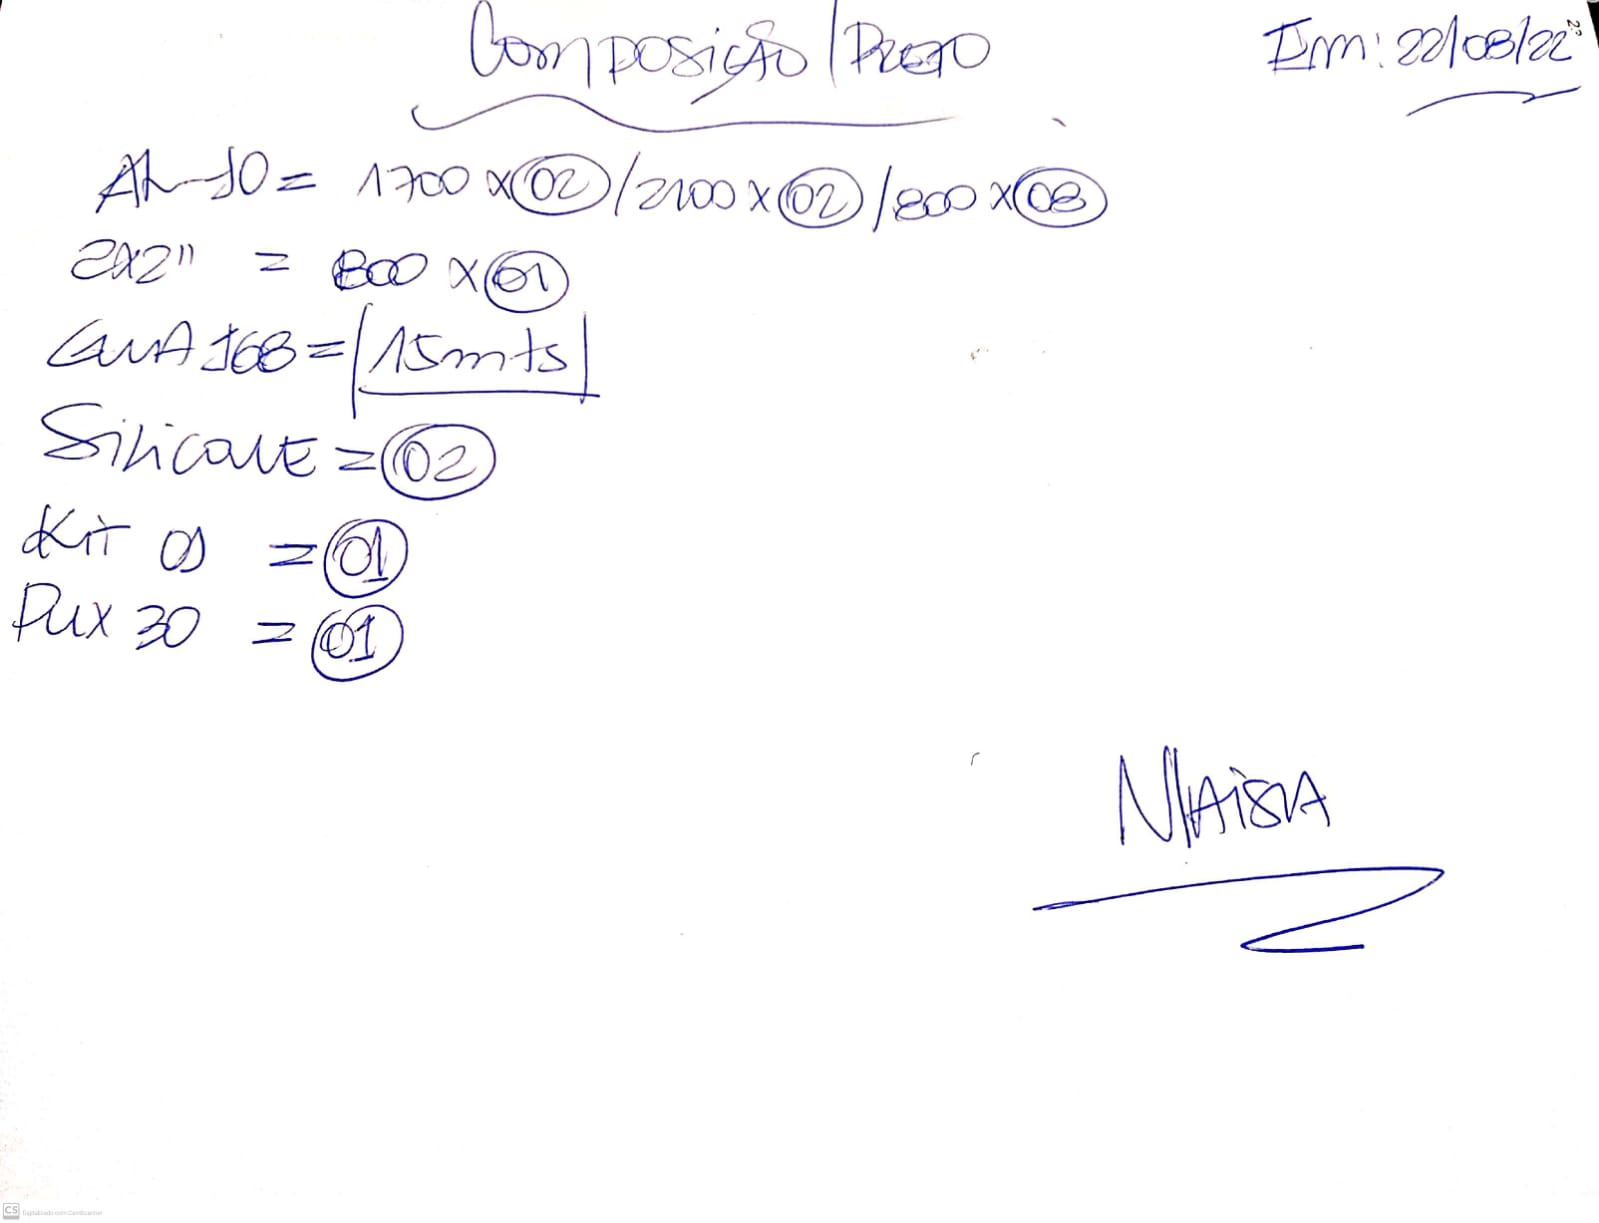 Composição/Preto Em: 22/08/22
AL-10 = 1700 x 02 / 2100 x 02 / 800 x 08
2x2" = 800 x 01
J68 = 15mts
Silicone = 02
Kit = 01
Pux 30 = 01
CS Digitalizado com CamScanner